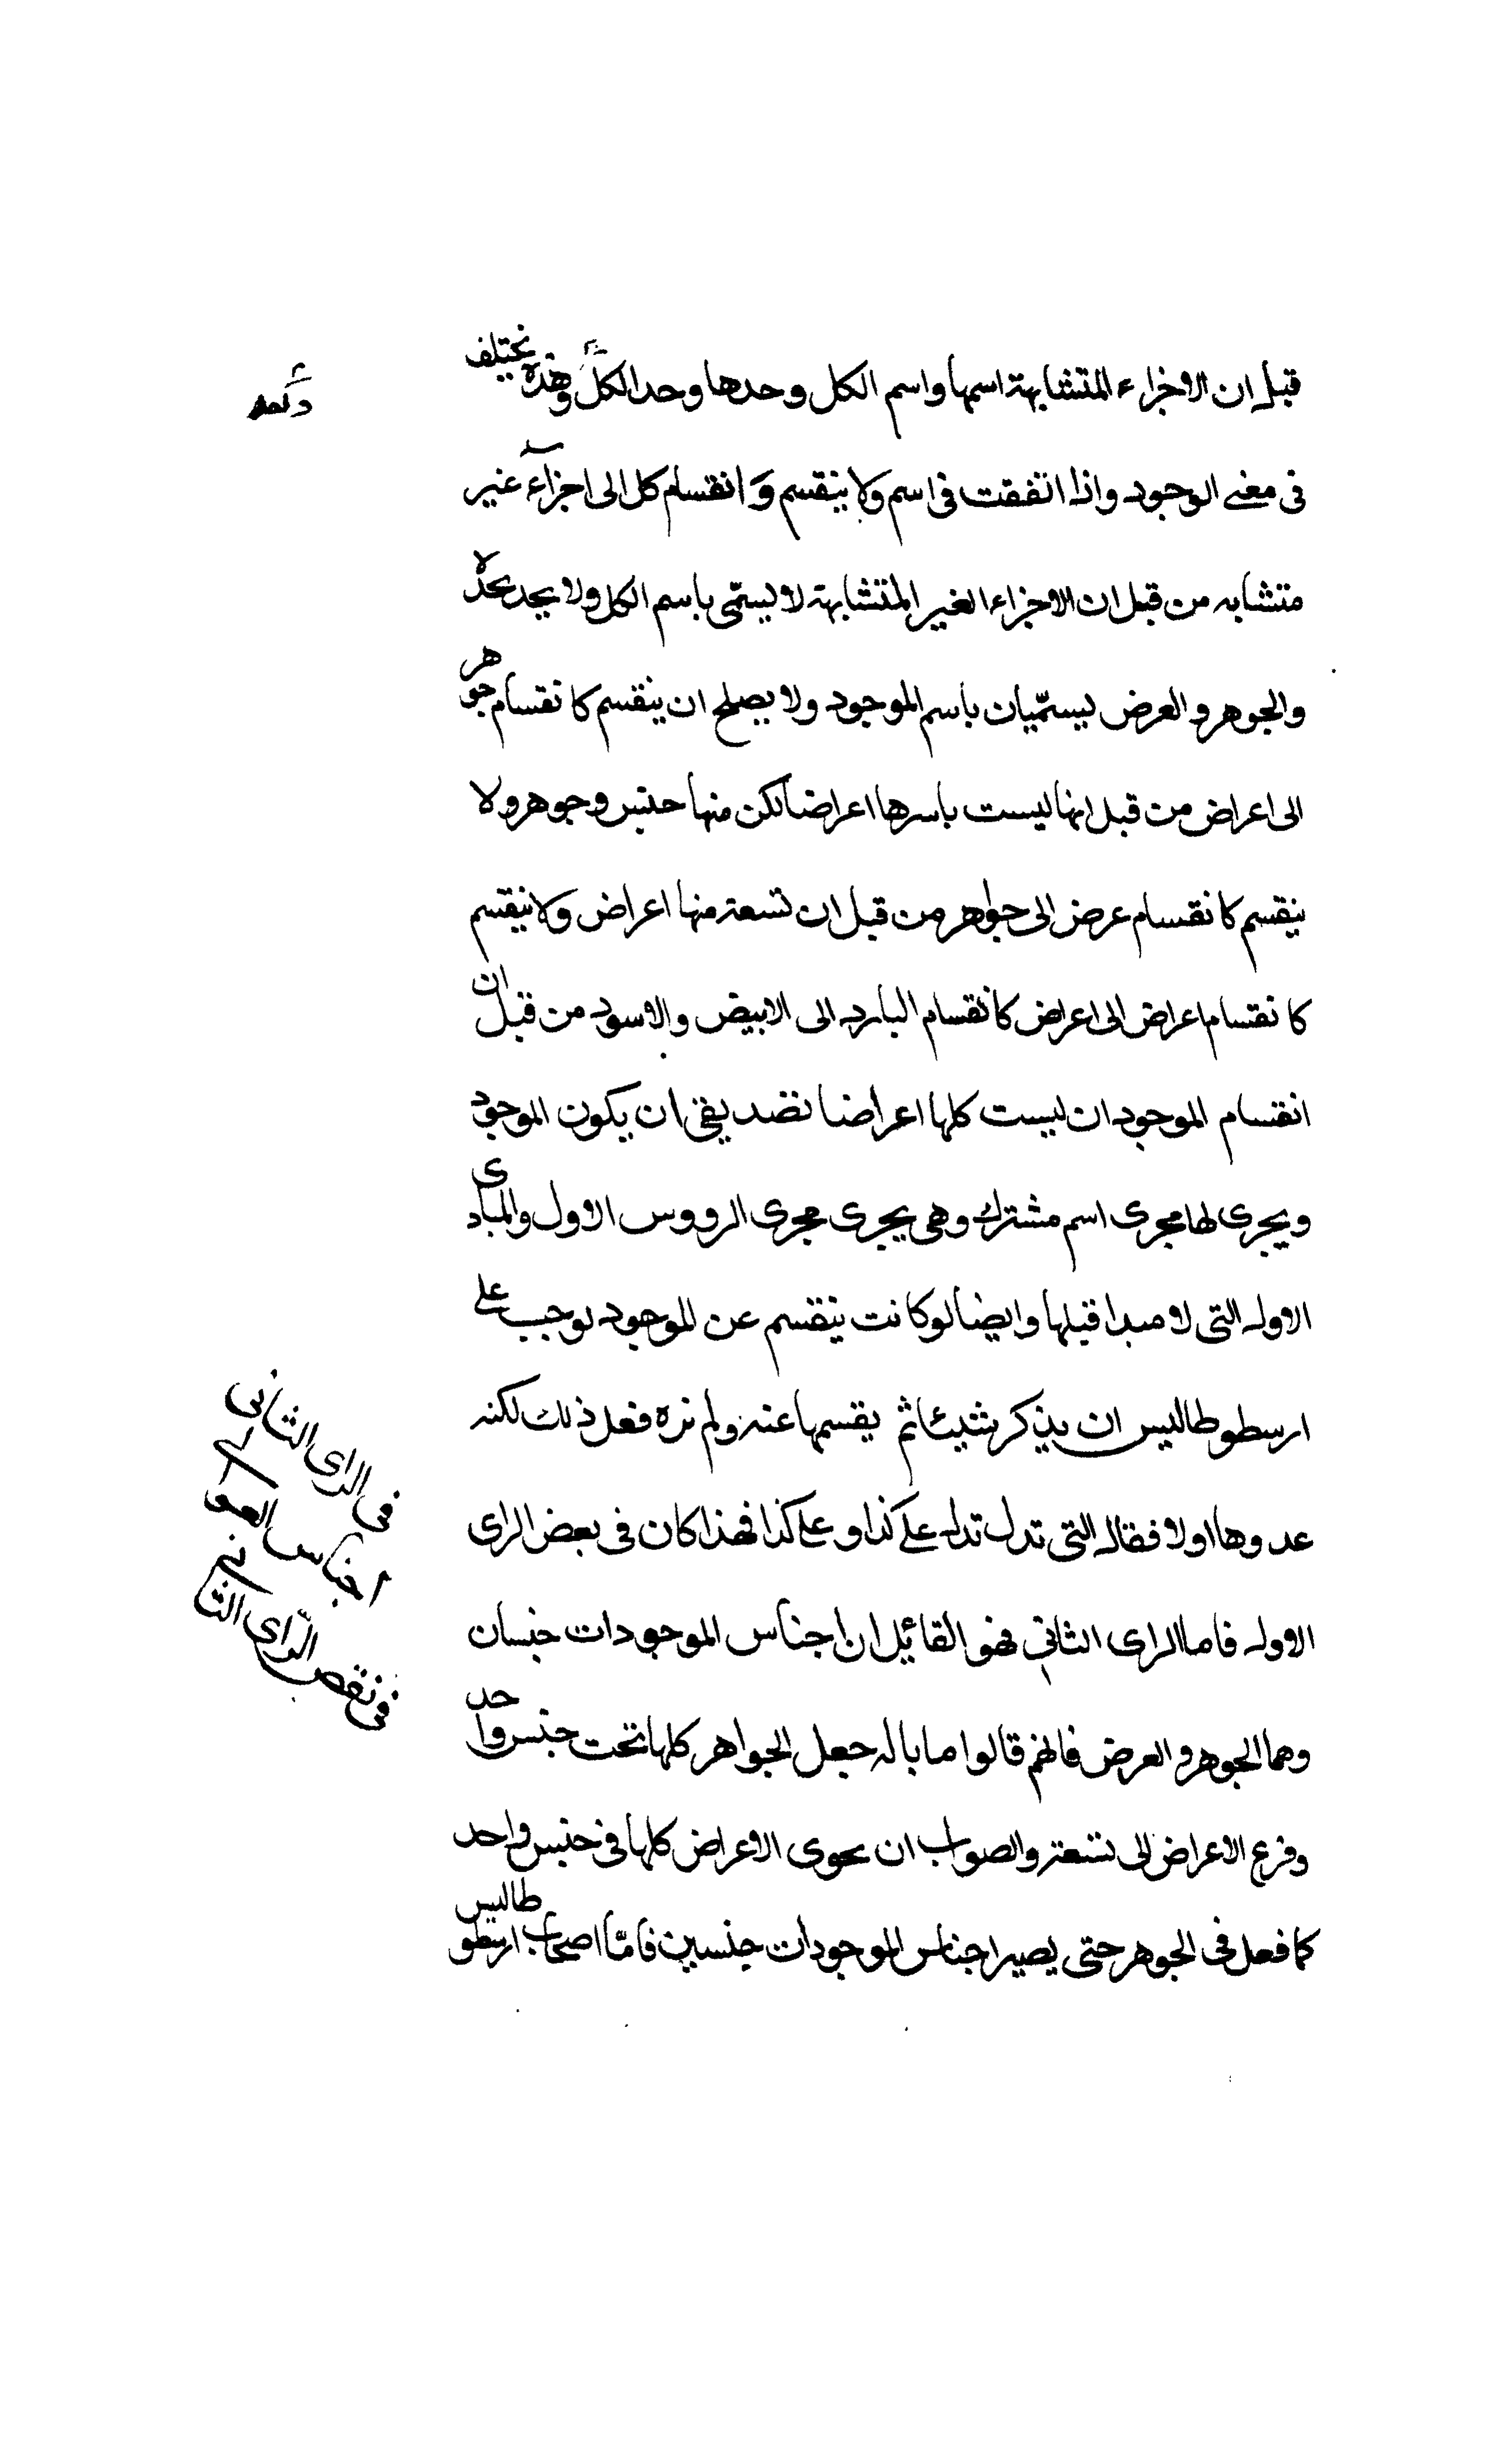 قبل ان الاجزاء المتشابهة اسمها واسم الكل وحدها وحد الكل وهذه تختلف
فى معنى الوجود واذا اتفقت فى اسم ولا ينقسم و انقسام كل الى اجزاء غير
متشابه من قبل ان الاجزاء الغير المتشابهة لا يسمّى باسم الكل ولا يحد بحدّه
والجوهر والعرض يسمّيان باسم الموجود ولا يصلح ان ينقسم كانقسام جوهر
الى اعراض من قبل انها ليست باسرها اعراضا لكن منها جنس وجوهر ولا
ينقسم كانقسام عرض الى جواهر من قبل ان تسعة منها اعراض ولا ينقسم
كانقسام اعراض الى اعراض كانقسام البارد الى الابيض والاسود من قبل ان
انقسام الموجود ان ليست كلها اعراضا نضد بقى ان يكون الموجود
ويجرى لها مجرى اسم مشترك وهى يجرى مجرى الرووس الاول والمبادى
الاوله التى لا مبدا قبلها وايضا لو كانت ينقسم عن الموجود لوجب على
ارسطوطاليس ان يذكر شيئا ثم يقسمها عنه ولم نره فعل ذلك لكنه
عدوها اولا فقال التى تدل تدل على كذا وعلى كذا فهذا كان فى بعض الراى
الاوله فاما الراى الثانى فهو القائل ان اجناس الموجودات جنسان
وهما الجوهر والعرض فانهم قالوا ما باله جعل الجواهر كلها تحت جنس واحد
وفرع الاعراض الى تسعة والصواب ان يحوى الاعراض كلها فى جنس واحد
كما فعل فى الجوهر حتى يصير اجناس الموجودات جنسين فامّا اصحاب ارسطوطاليس
فى الراى الثانى
اجناس العوالى
فى نقص الرّاى الثانى